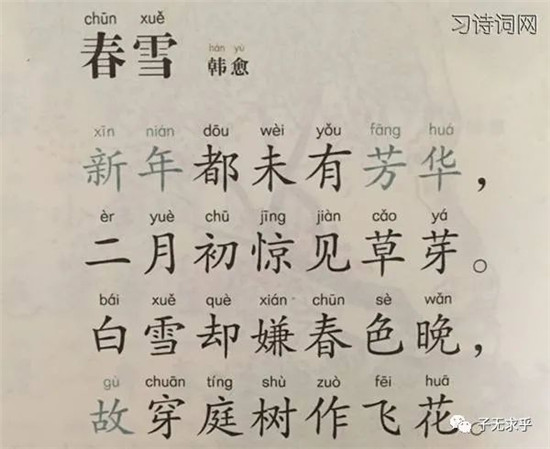 习诗词网
chūn xuě
春雪
hán yù
韩愈
xīn nián dōu wèi yǒu fāng huá
新年都未有芳华，
èr yuè chū jīng jiàn cǎo yá
二月初惊见草芽。
bái xuě què xián chūn sè wǎn
白雪却嫌春色晚，
gù chuān tíng shù zuò fēi huā
故穿庭树作飞花。
子无求乎